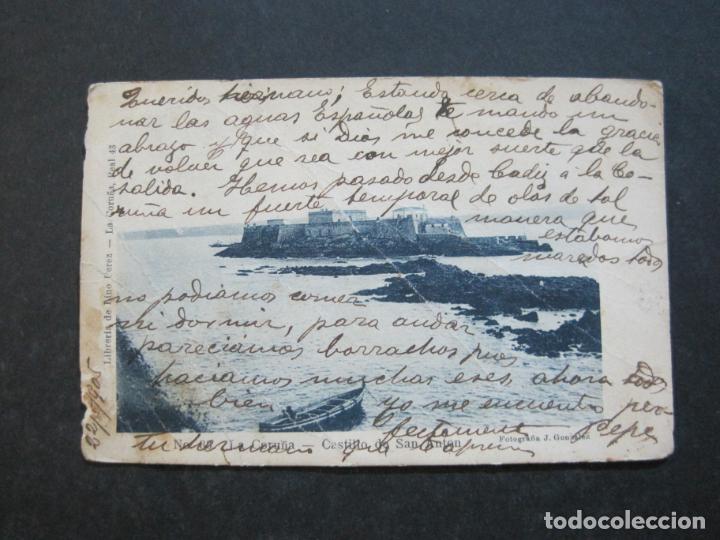 Querido hermano; Estando cerca de abando-
nar las aguas Españolas te mando un
abrazo y que si Dios me concede la gracia
de volver que sea con mejor suerte que la
salida. Hemos pasado desde Cadiz a la Co-
ruña un fuerte temporal de olas de tal
manera que
estabamos
mareados todos
no podiamos comer
ni dormir, para andar
pareciamos borrachos pues
haciamos muchas eses, ahora todo
bien yo me encuentro per-
fectamente Pepe
tu hermano que
1905
Librería de Lino Perez — La Coruña, Real 43
La Coruña — Castillo de San Anton
Fotografía J. González
todocoleccion
todocoleccion.net